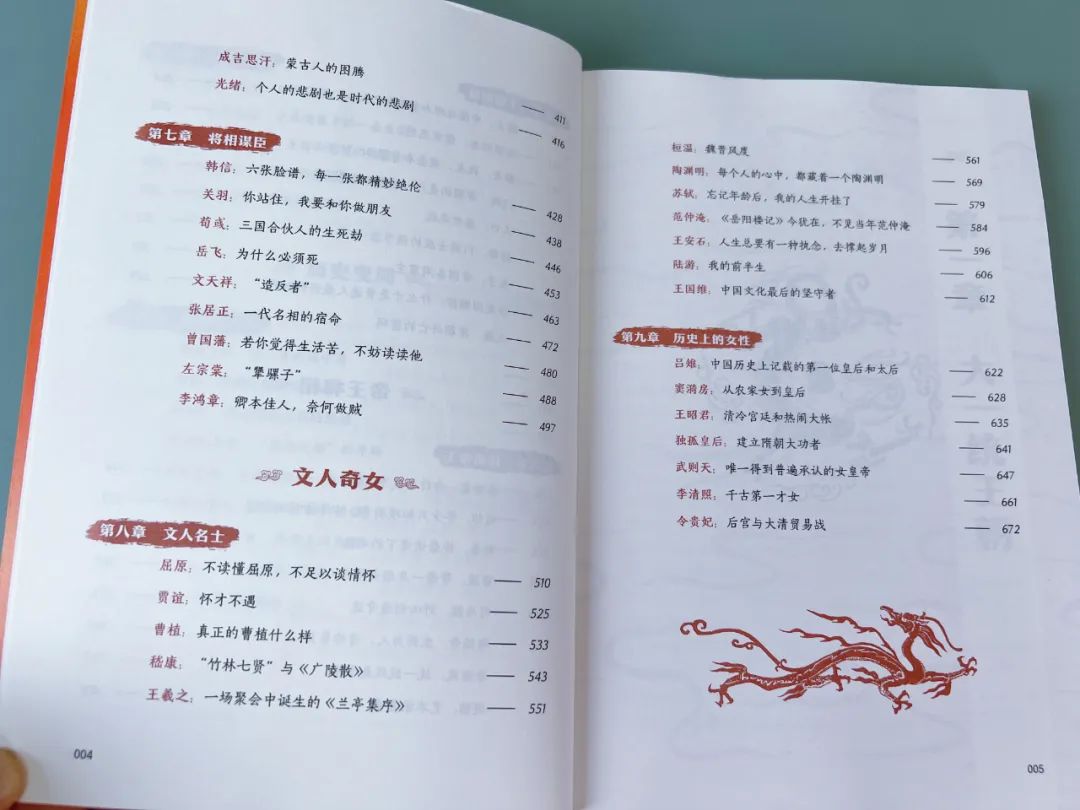 成吉思汗：蒙古人的图腾 —— 411
光绪：个人的悲剧也是时代的悲剧 —— 416
第七章 将相谋臣
韩信：六张脸谱，每一张都精妙绝伦 —— 428
关羽：你站住，我要和你做朋友 —— 438
荀彧：三国合伙人的生死劫 —— 446
岳飞：为什么必须死 —— 453
文天祥：“造反者” —— 463
张居正：一代名相的宿命 —— 472
曾国藩：若你觉得生活苦，不妨读读他 —— 480
左宗棠：“犟骡子” —— 488
李鸿章：卿本佳人，奈何做贼 —— 497
文人奇女
第八章 文人名士
屈原：不读懂屈原，不足以谈情怀 —— 510
贾谊：怀才不遇 —— 525
曹植：真正的曹植什么样 —— 533
嵇康：“竹林七贤”与《广陵散》 —— 543
王羲之：一场聚会中诞生的《兰亭集序》 —— 551
004
桓温：魏晋风度 —— 561
陶渊明：每个人的心中，都藏着一个陶渊明 —— 569
苏轼：忘记年龄后，我的人生开挂了 —— 579
范仲淹：《岳阳楼记》今犹在，不见当年范仲淹 —— 584
王安石：人生总要有一种执念，去撑起岁月 —— 596
陆游：我的前半生 —— 606
王国维：中国文化最后的坚守者 —— 612
第九章 历史上的女性
吕雉：中国历史上记载的第一位皇后和太后 —— 622
窦漪房：从农家女到皇后 —— 628
王昭君：清冷宫廷和热闹大帐 —— 635
独孤皇后：建立隋朝大功者 —— 641
武则天：唯一得到普遍承认的女皇帝 —— 647
李清照：千古第一才女 —— 661
令贵妃：后宫与大清贸易战 —— 672
005